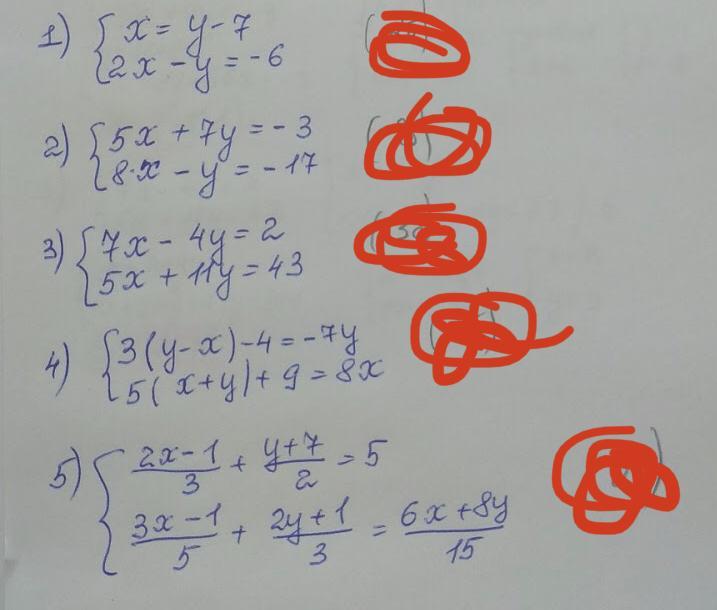 1) { x = y - 7
2x - y = -6
2) { 5x + 7y = -3
8·x - y = -17
3) { 7x - 4y = 2
5x + 11y = 43
4) { 3(y-x)-4 = -7y
5(x+y)+9 = 8x
5) { (2x-1)/3 + (y+7)/2 = 5
(3x-1)/5 + (2y+1)/3 = (6x+8y)/15